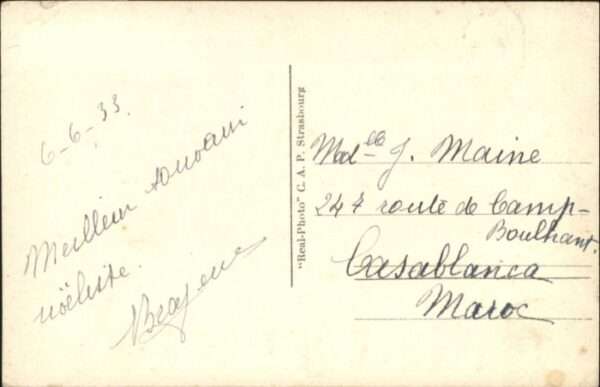 6-6-33.
Meilleur souvenir
noëliste.
"Real-Photo" C. A. P. Strasbourg
Mad^elle J. Maine
247 route de Camp-
Boulhaut.
Casablanca
Maroc